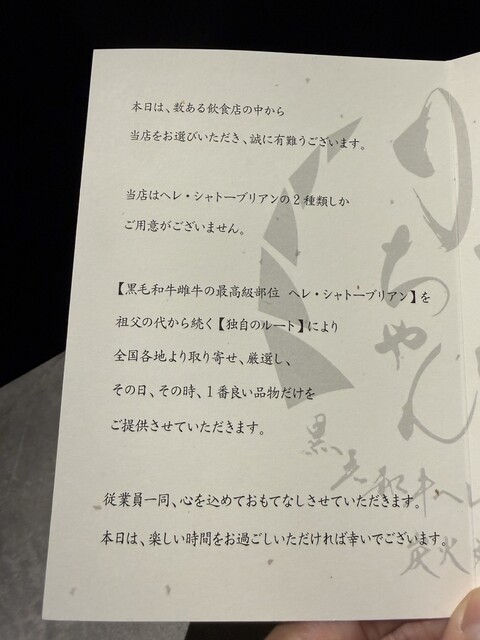 本日は、数ある飲食店の中から
当店をお選びいただき、誠に有難うございます。
当店はヘレ・シャトーブリアンの2種類しか
ご用意がございません。
【黒毛和牛雌牛の最高級部位 ヘレ・シャトーブリアン】を
祖父の代から続く【独自のルート】により
全国各地より取り寄せ、厳選し、
その日、その時、1番良い品物だけを
ご提供させていただきます。
従業員一同、心を込めておもてなしさせていただきます。
本日は、楽しい時間をお過ごしいただければ幸いでございます。
りちゃん
黒毛和牛ヘレ
炭火